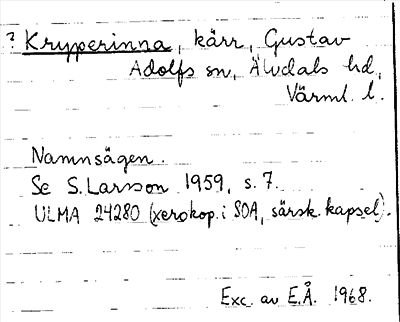 ? Kryperinna, kärr, Gustav
Adolfs sn, Älvdals hd,
Värml. l.
Namnsägen.
Se S. Larsson 1959, s. 7.
ULMA 24280 (xerokop. i SOA, särsk. kapsel).
Exc. av E.Å. 1968.